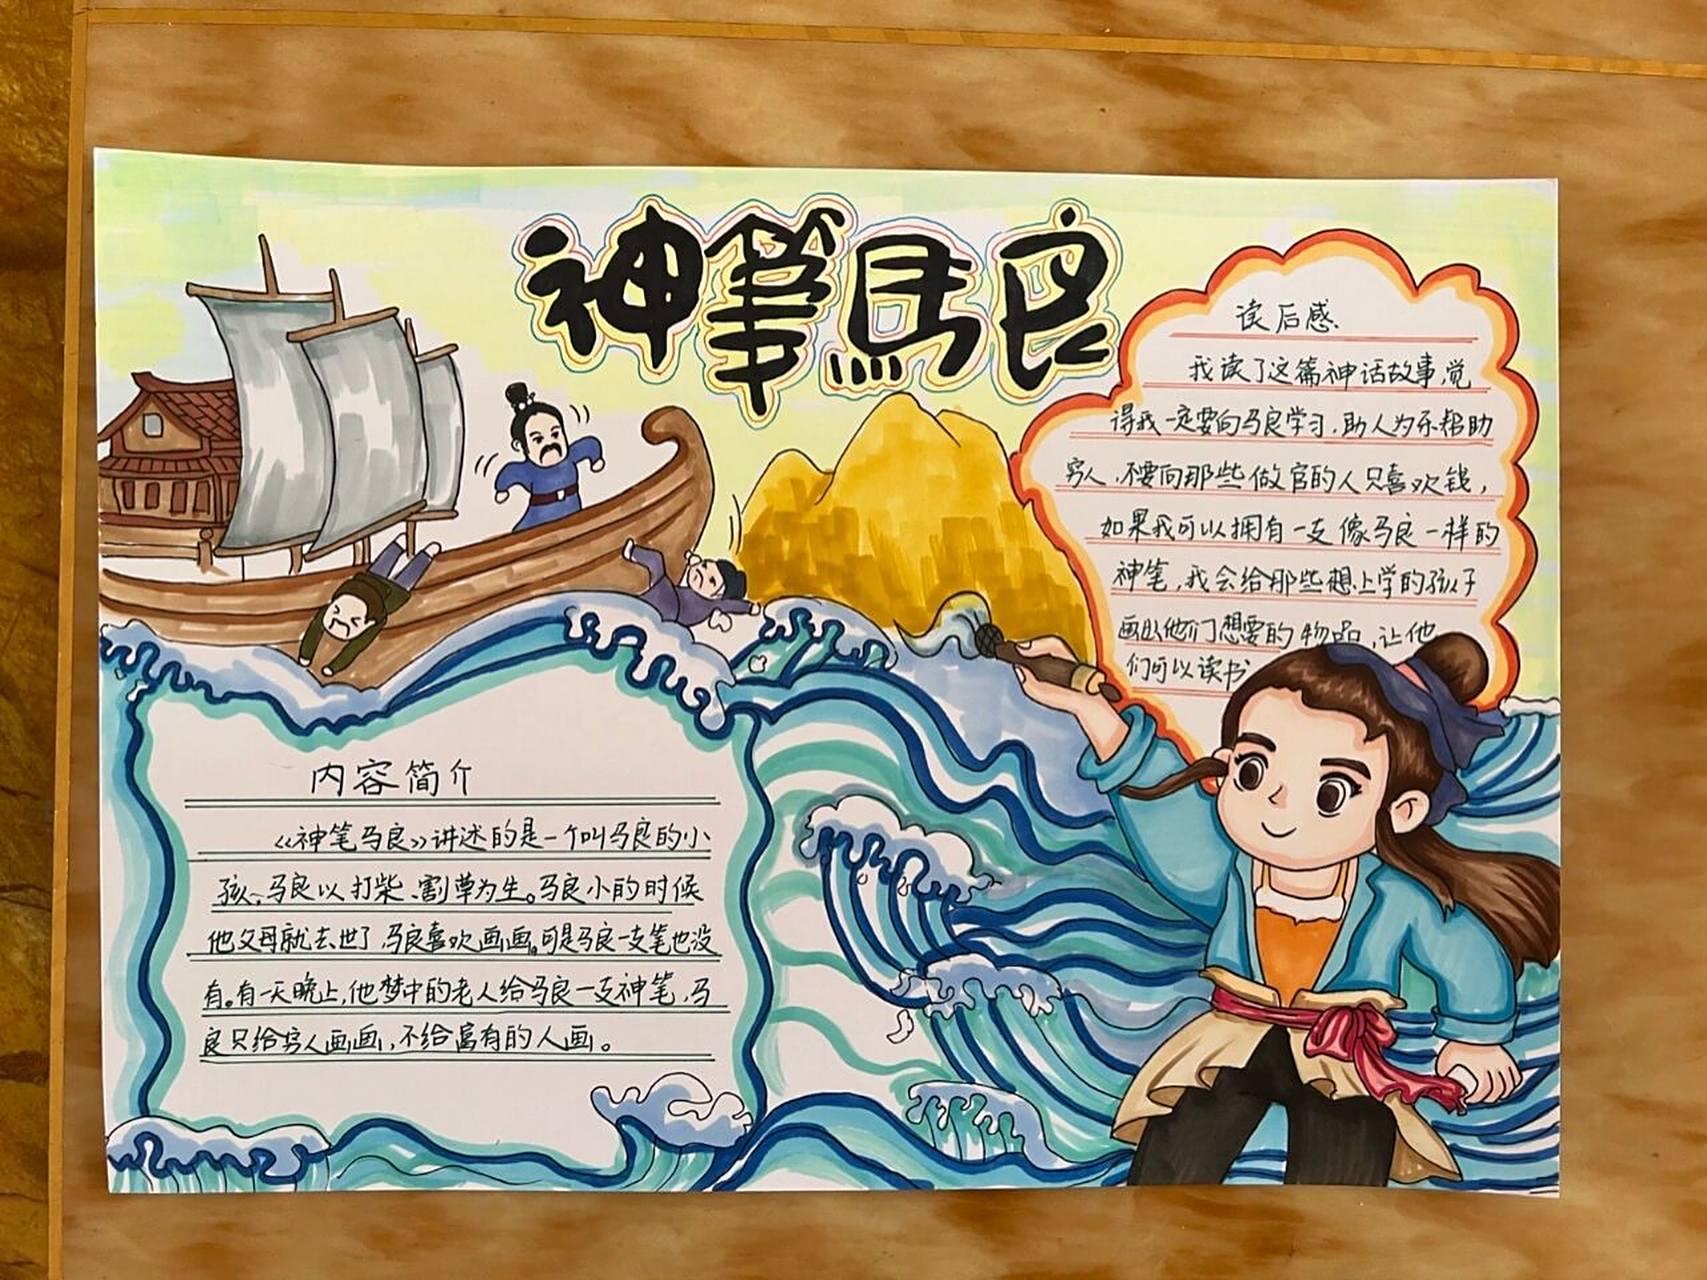 神笔馬良
读后感
我读了这篇神话故事,觉
得我一定要向马良学习,助人为乐帮助
穷人,不要向那些做官的人只喜欢钱,
如果我可以拥有一支像马良一样的
神笔,我会给那些想上学的孩子
画出他们想要的物品,让他
们可以读书
内容简介
《神笔马良》讲述的是一个叫马良的小
孩,马良以打柴、割草为生。马良小的时候
他父母就去世了 马良喜欢画画,可是马良一支笔也没
有。有一天晚上,他梦中的老人给马良一支神笔,马
良只给穷人画画,不给富有的人画。